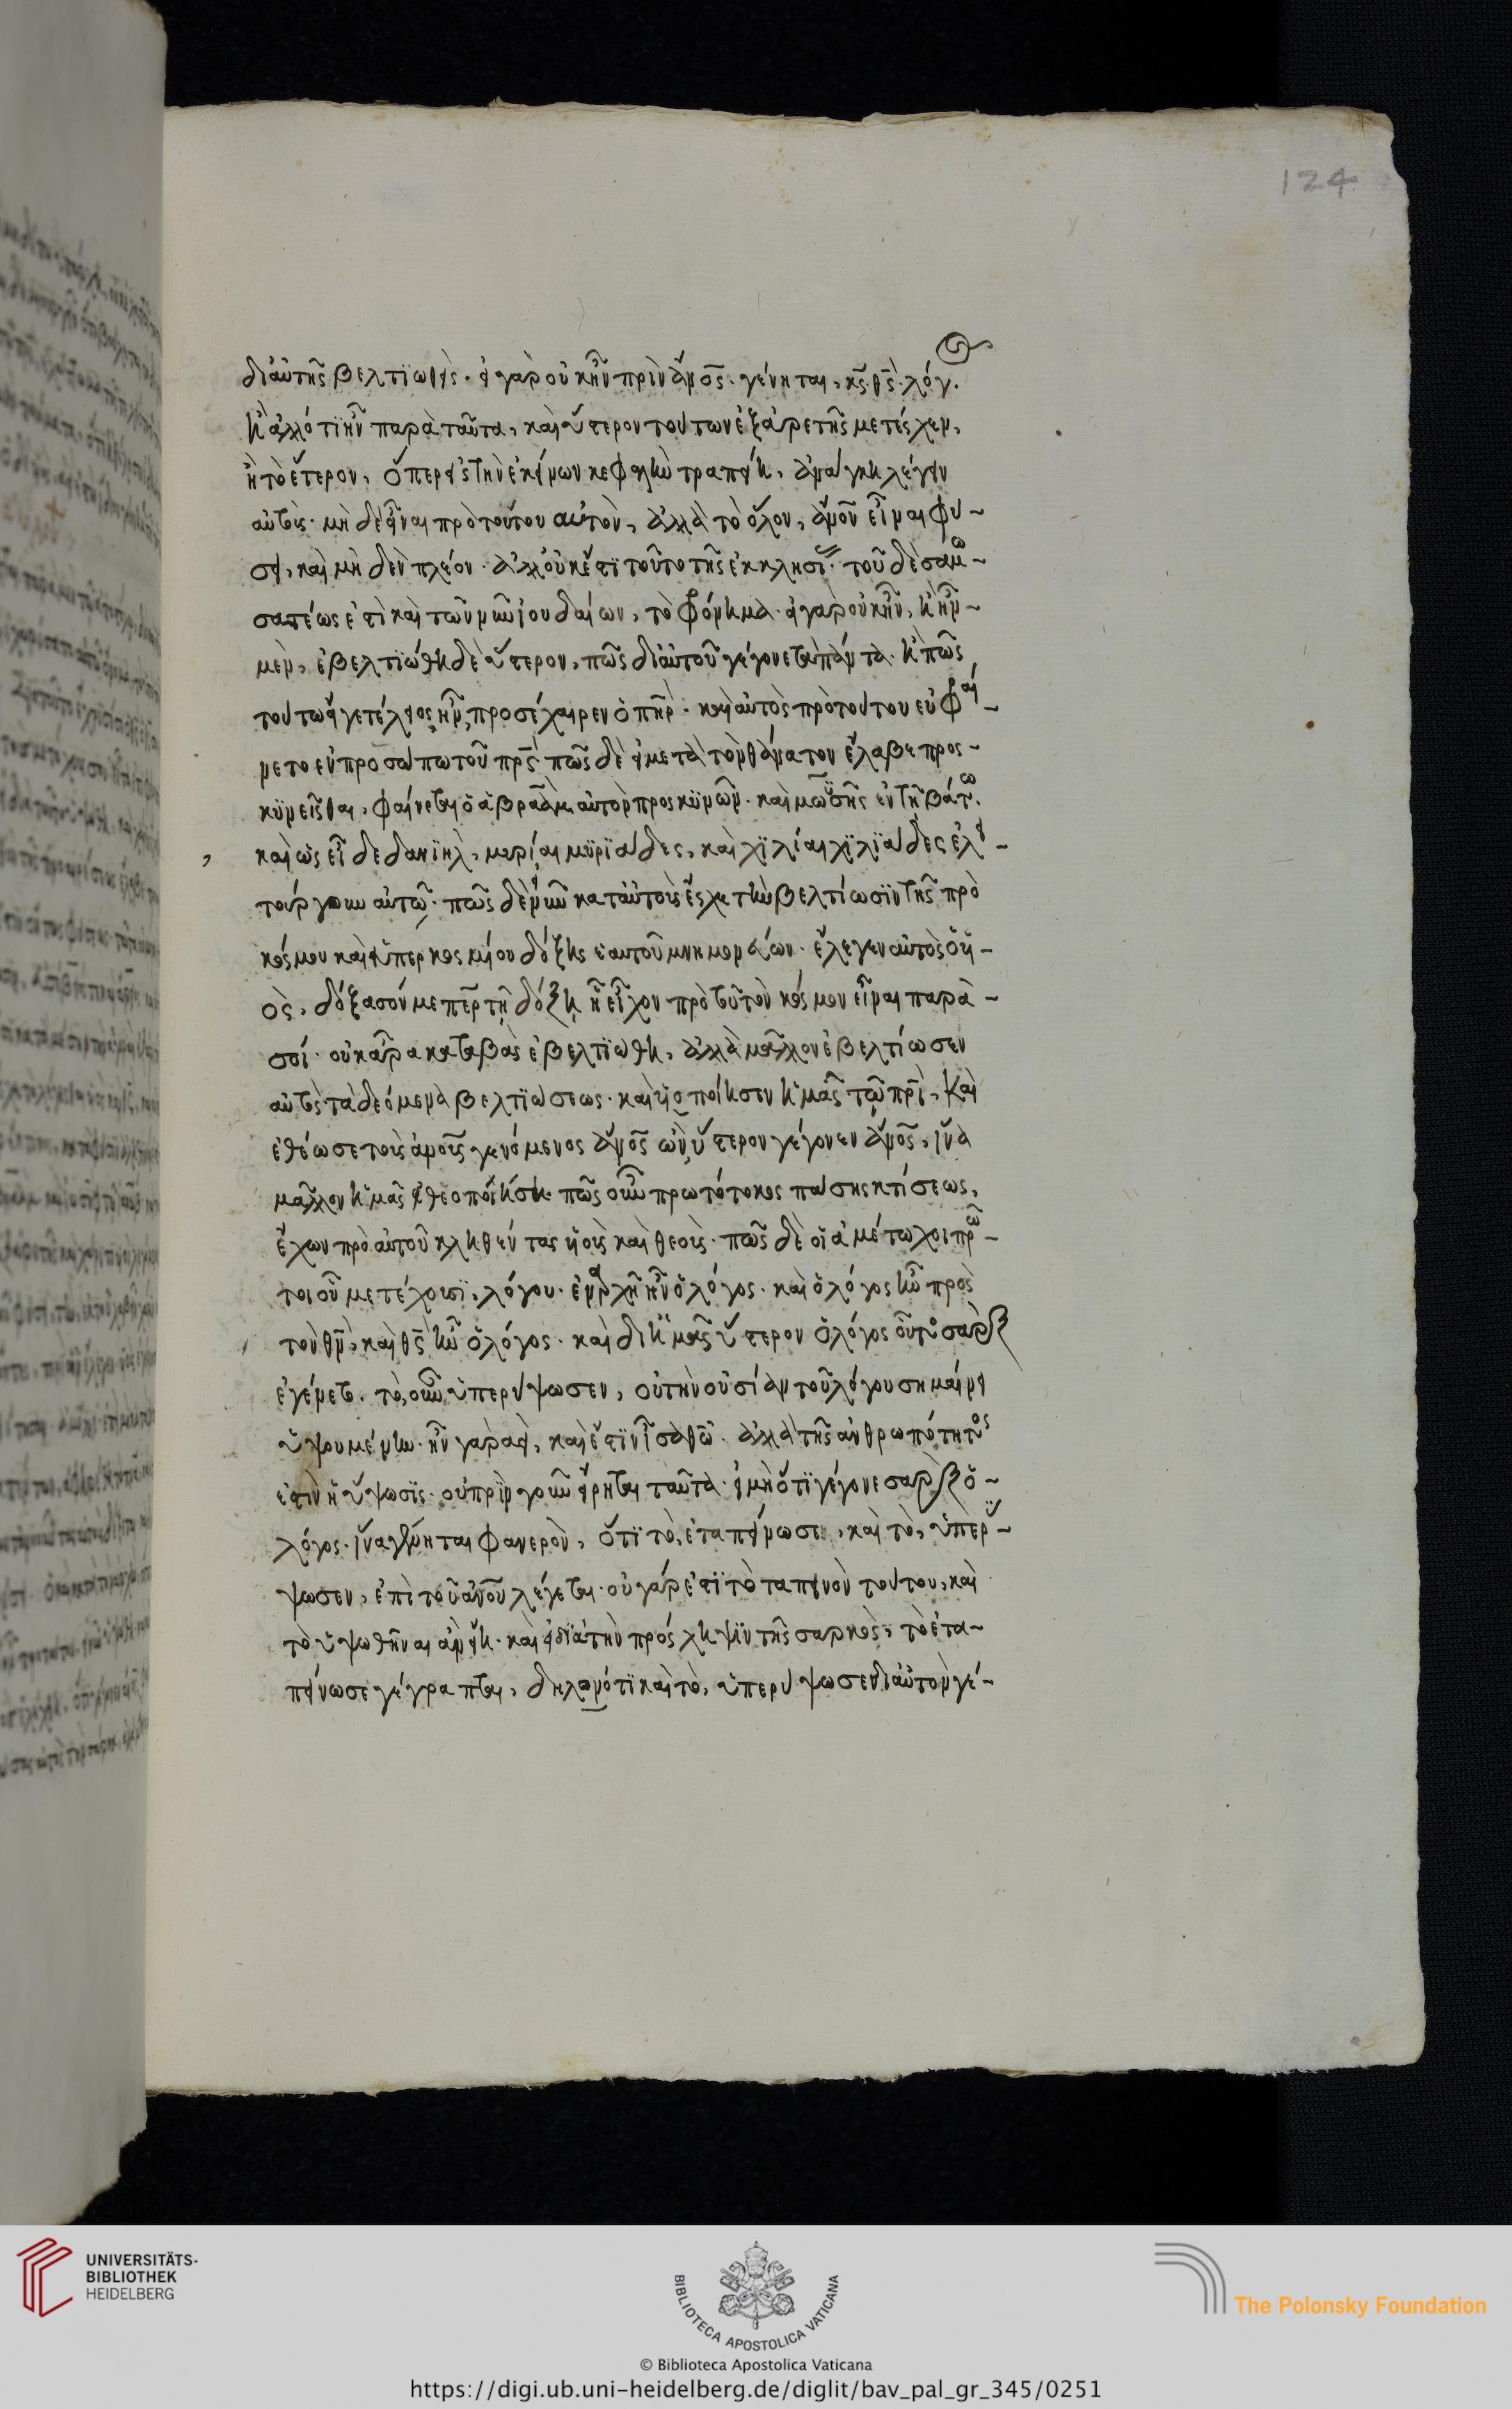 124
δι' αὐτῆς βελτιωθείς. εἰ γὰρ οὐκ ἦν πρὶν ἄνος γένηται, κς. θς. λόγ.
ἢ ἄλλό τι ἦν παρὰ ταῦτα, καὶ ὕστερον τούτων ἐξ ἀρετῆς μετέσχεν,
ἢ τὸ ἕτερον, ὅπερ εἰς τὴν ἐκείνων κεφαλὴν τραπείη, ἀνάγκη λέγειν
αὐτοὺς. μὴ δὲ εἶναι πρὸ τούτου αὐτὸν, ἀλλὰ τὸ ὅλον, ἄνον εἶναι φύ-
σει, καὶ μὴ δὲν πλέον. ἀλλ' οὐκ ἔστι τοῦτο τῆς ἐκκλησί. τοῦ δὲ σαμω-
σατέως ἐστὶ καὶ τῶν νῦν ἰουδαίων, τὸ φρόνημα. εἰ γὰρ οὐκ ἦν, ἢ ἦν
μὲν, ἐβελτιώθη δὲ ὕστερον, πῶς δι' αὐτοῦ γέγονε τὰ πάντα. ἢ πῶς
τούτω εἴγε τέλειος ἦν, προσέχαιρεν ὁ πηρ. καὶ αὐτὸς πρὸ τούτου εὐφραί-
νετο ἐν προσώπω τοῦ πρς. πῶς δὲ εἰ μετὰ τὸν θάνατον ἔλαβε προς-
κυνεῖσθαι, φαίνεται ὁ ἀβραὰμ αὐτὸν προσκυνῶν. καὶ μωϋσῆς ἐν τῆ βάτω.
καὶ ὡς εἶδε δανιὴλ, μυρίαι μυριάδες, καὶ χίλιαι χιλιάδες ἐλει-
τούργουν αὐτῶ. πῶς δὲ εἰ νῦν κατ' αὐτοὺς ἔσχε τὴν βελτίωσιν τῆς πρὸ
κόσμου καὶ ὑπερκοσμίου δόξης ἑαυτοῦ μνημονεύων. ἔλεγεν αὐτὸς ὁ υἱ-
ὸς, δόξασόν με περ τῆ δόξη ἧ εἶχον πρὸ τοῦ τὸν κόσμον εἶναι παρὰ
σοί. οὐκ ἄρα καταβὰς ἐβελτιώθη, ἀλλὰ μᾶλλον ἐβελτίωσεν
αὐτὸς τὰ δεόμενα βελτιώσεως. καὶ υἱοποίησεν ἡμᾶς τῶ πρὶ, καὶ
ἐθέωσε τοὺς ἀνους γενόμενος ἄνος ὢν ὕστερον γέγονεν ἄνος, ἵνα
μᾶλλον ἡμᾶς θεοποιήση. πῶς οὖν πρωτότοκος πάσης κτίσεως,
ἔχων πρὸ αὐτοῦ κληθέντας υἱοὺς καὶ θεούς. πῶς δὲ οἱ α μέτοχοι πρω-
τοι οὐ μετέχουσι λόγου. ἐν ἀρχῆ ἦν ὁ λόγος. καὶ ὁ λόγος ἦν πρὸς
τὸν θν, καὶ θς ἦν ὁ λόγος. καὶ δι' ἡμᾶς ὕστερον ὁ λόγος οὗτος σὰρξ
ἐγένετο. τὸ, οὖν ὑπερύψωσεν, οὐ τὴν οὐσίαν τοῦ λόγου σημαίνει
ὑψουμένην. ἦν γὰρ ἀεὶ, καὶ ἔστιν ἴσα θῶ. ἀλλὰ τῆς ἀνθρωπότητος
ἐστιν ἡ ὕψωσις. οὐ πρὶν γοῦν εἴρηται ταῦτα. εἰ μὴ ὅτι γέγονε σὰρξ ὁ
λόγος. ἵνα γένηται φανερὸν, ὅτι τὸ, ἐταπείνωσε, καὶ τὸ, ὑπερύ-
ψωσεν, ἐπὶ τοῦ ἀνου λέγεται. οὗ γάρ ἐστι τὸ ταπεινὸν τούτου, καὶ
τὸ ὑψωθῆναι ἂν εἴη. καὶ εἰ διὰ τὴν πρόσληψιν τῆς σαρκὸς, τὸ ἐτα-
πείνωσε γέγραπται, δηλονότι καὶ τὸ, ὑπερύψωσε δι' αὐτὸν γέ-
UNIVERSITÄTS-
BIBLIOTHEK
HEIDELBERG
BIBLIOTECA APOSTOLICA VATICANA
© Biblioteca Apostolica Vaticana
The Polonsky Foundation
https://digi.ub.uni-heidelberg.de/diglit/bav_pal_gr_345/0251